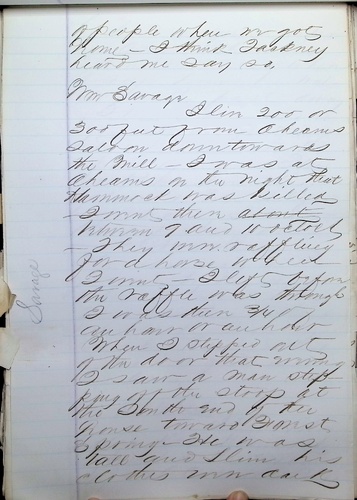 of people when we got
home - I think Tackney
heard me say so,
Wm Savage
I live 200 or
300 feet from Cheams
Saloon down towards
the Mill - I was at
Cheams on the night that
Hammock was killed
- I went there about
between 9 and 10 o'clock
- They were raffling
for a horse when
I went - I left before
the raffle was through
I was there 3/4
an hour or an hour
When I stepped out
of the door that night
I saw a man step
off the stoop at
the South end of the
house toward
Spring - He was
tall and slim his
clothes were dark
Savage